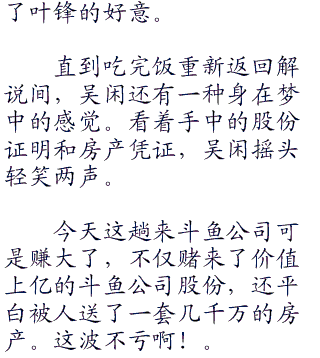 了叶锋的好意。
直到吃完饭重新返回解
说间，吴闲还有一种身在梦
中的感觉。看着手中的股份
证明和房产凭证，吴闲摇头
轻笑两声。
今天这趟来斗鱼公司可
是赚大了，不仅赌来了价值
上亿的斗鱼公司股份，还平
白被人送了一套几千万的房
产。这波不亏啊！。